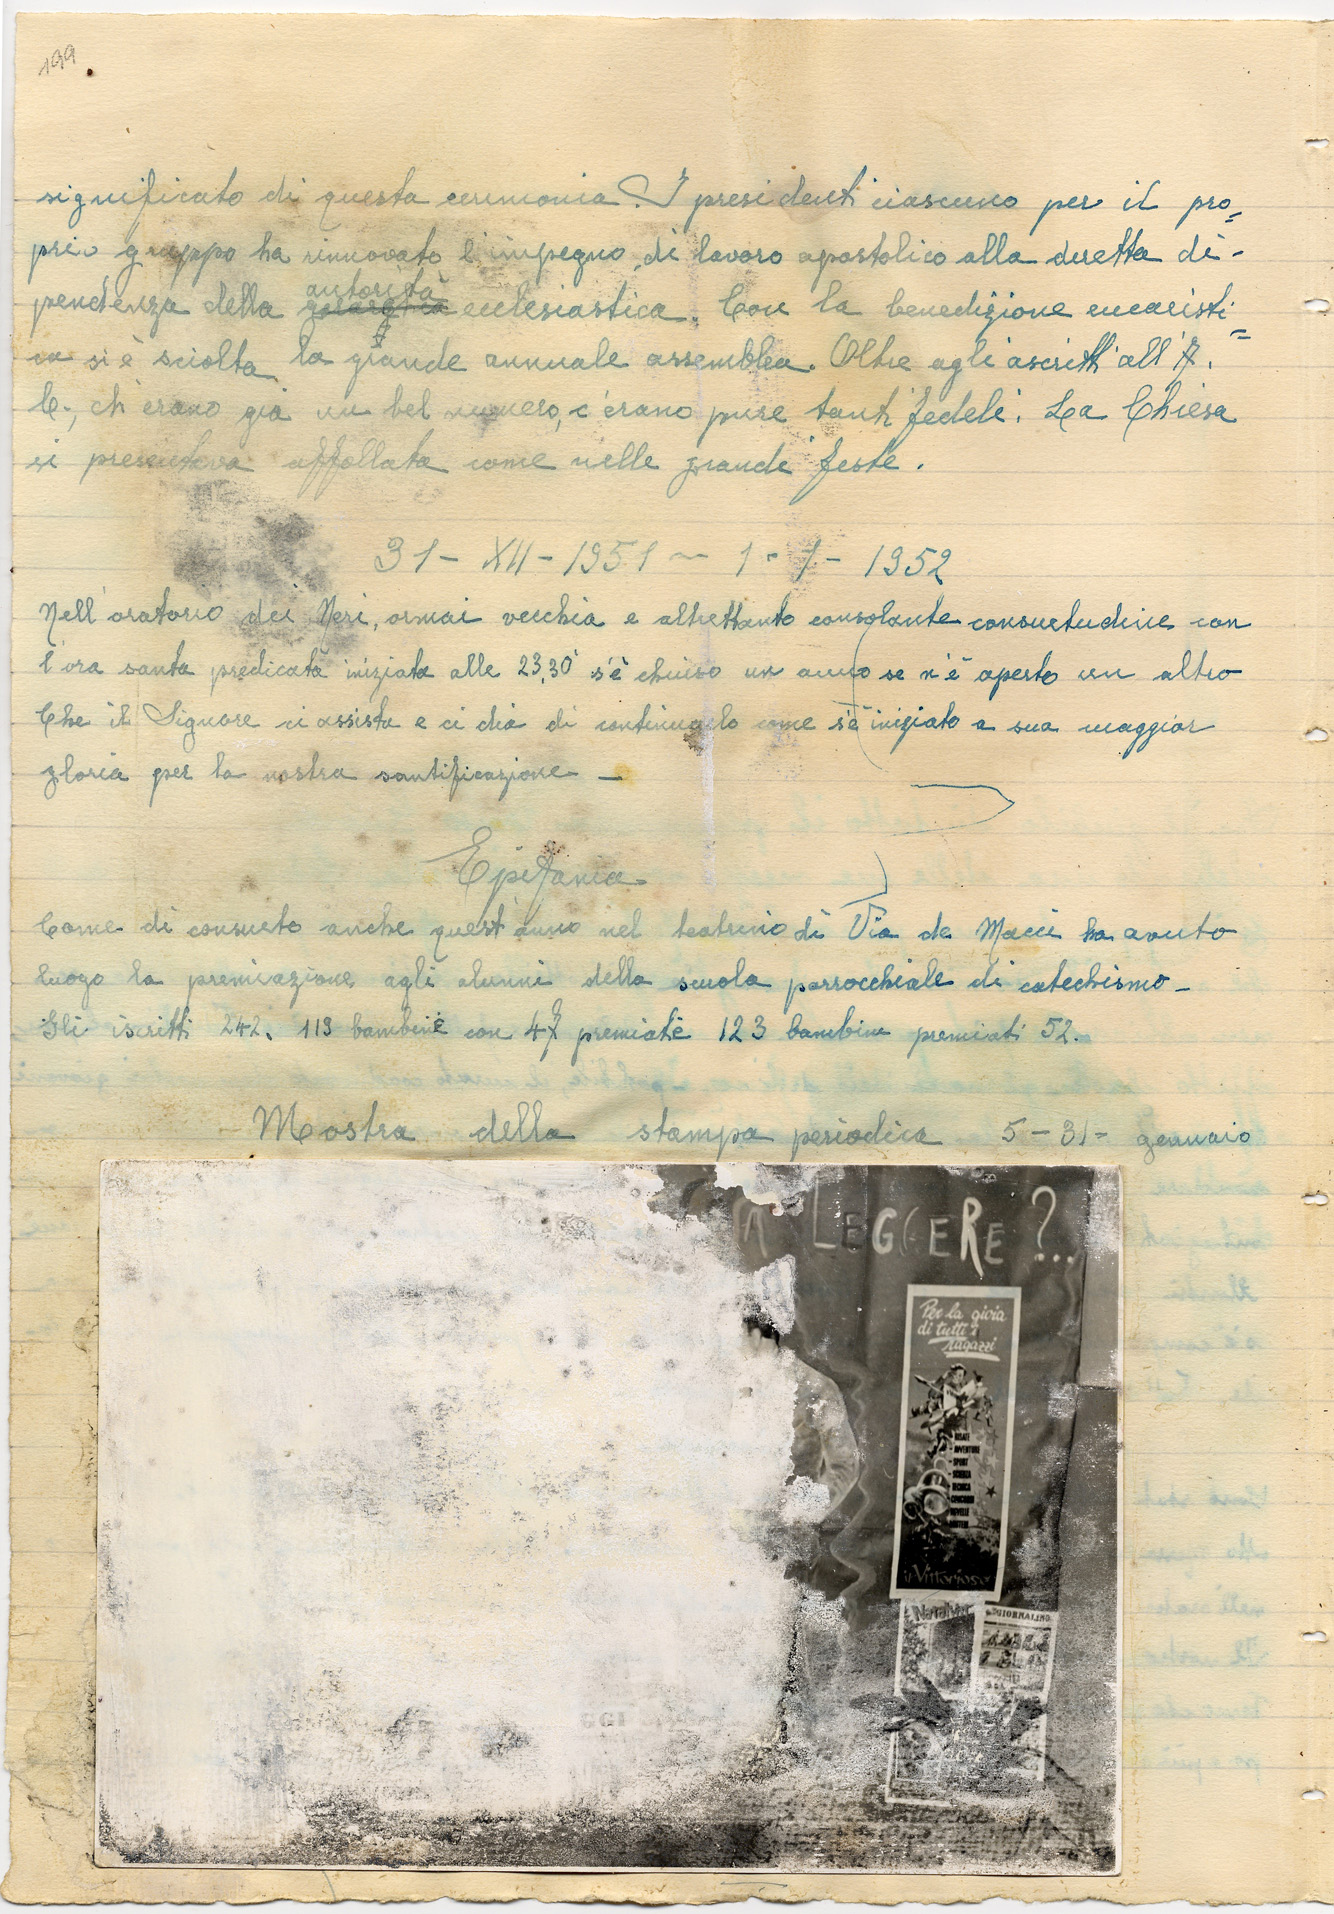 199
significato di questa cerimonia. I presidenti ciascuno per il pro=
prio gruppo ha rinnovato l'impegno di lavoro apostolico alla diretta di-
autorità
pendenza della ecclesiastica. Con la benedizione eucaristi=
ca si è sciolta la grande annuale assemblea. Oltre agli ascritti all'A.
C., ch'erano già un bel numero, c'erano pure tanti fedeli. La Chiesa
si presentava affollata come nelle grandi feste.
31-XII-1951 ~ 1-1-1952
Nell'oratorio dei Neri, ormai vecchia e altrettanto consolante consuetudine con
l'ora santa predicata iniziata alle 23,30 s'è chiuso un anno se n'è aperto un altro
Che il Signore ci assista e ci dia di continuarlo come s'è iniziato a sua maggior
gloria per la nostra santificazione -
Epifania
Come di consueto anche quest'anno nel teatrino di Via de Macci ha avuto
luogo la premiazione agli alunni della scuola parrocchiale di catechismo -
Gli iscritti 242. 113 bambine con 47 premiate 123 bambini premiati 52.
Mostra della stampa periodica 5-31= gennaio
LEGGERE?...
Per la gioia
di tutti i
ragazzi
RISATE
AVVENTURE
SPORT
SCIENZA
TECNICA
CONCORSI
NOVELLE
il Vittorioso